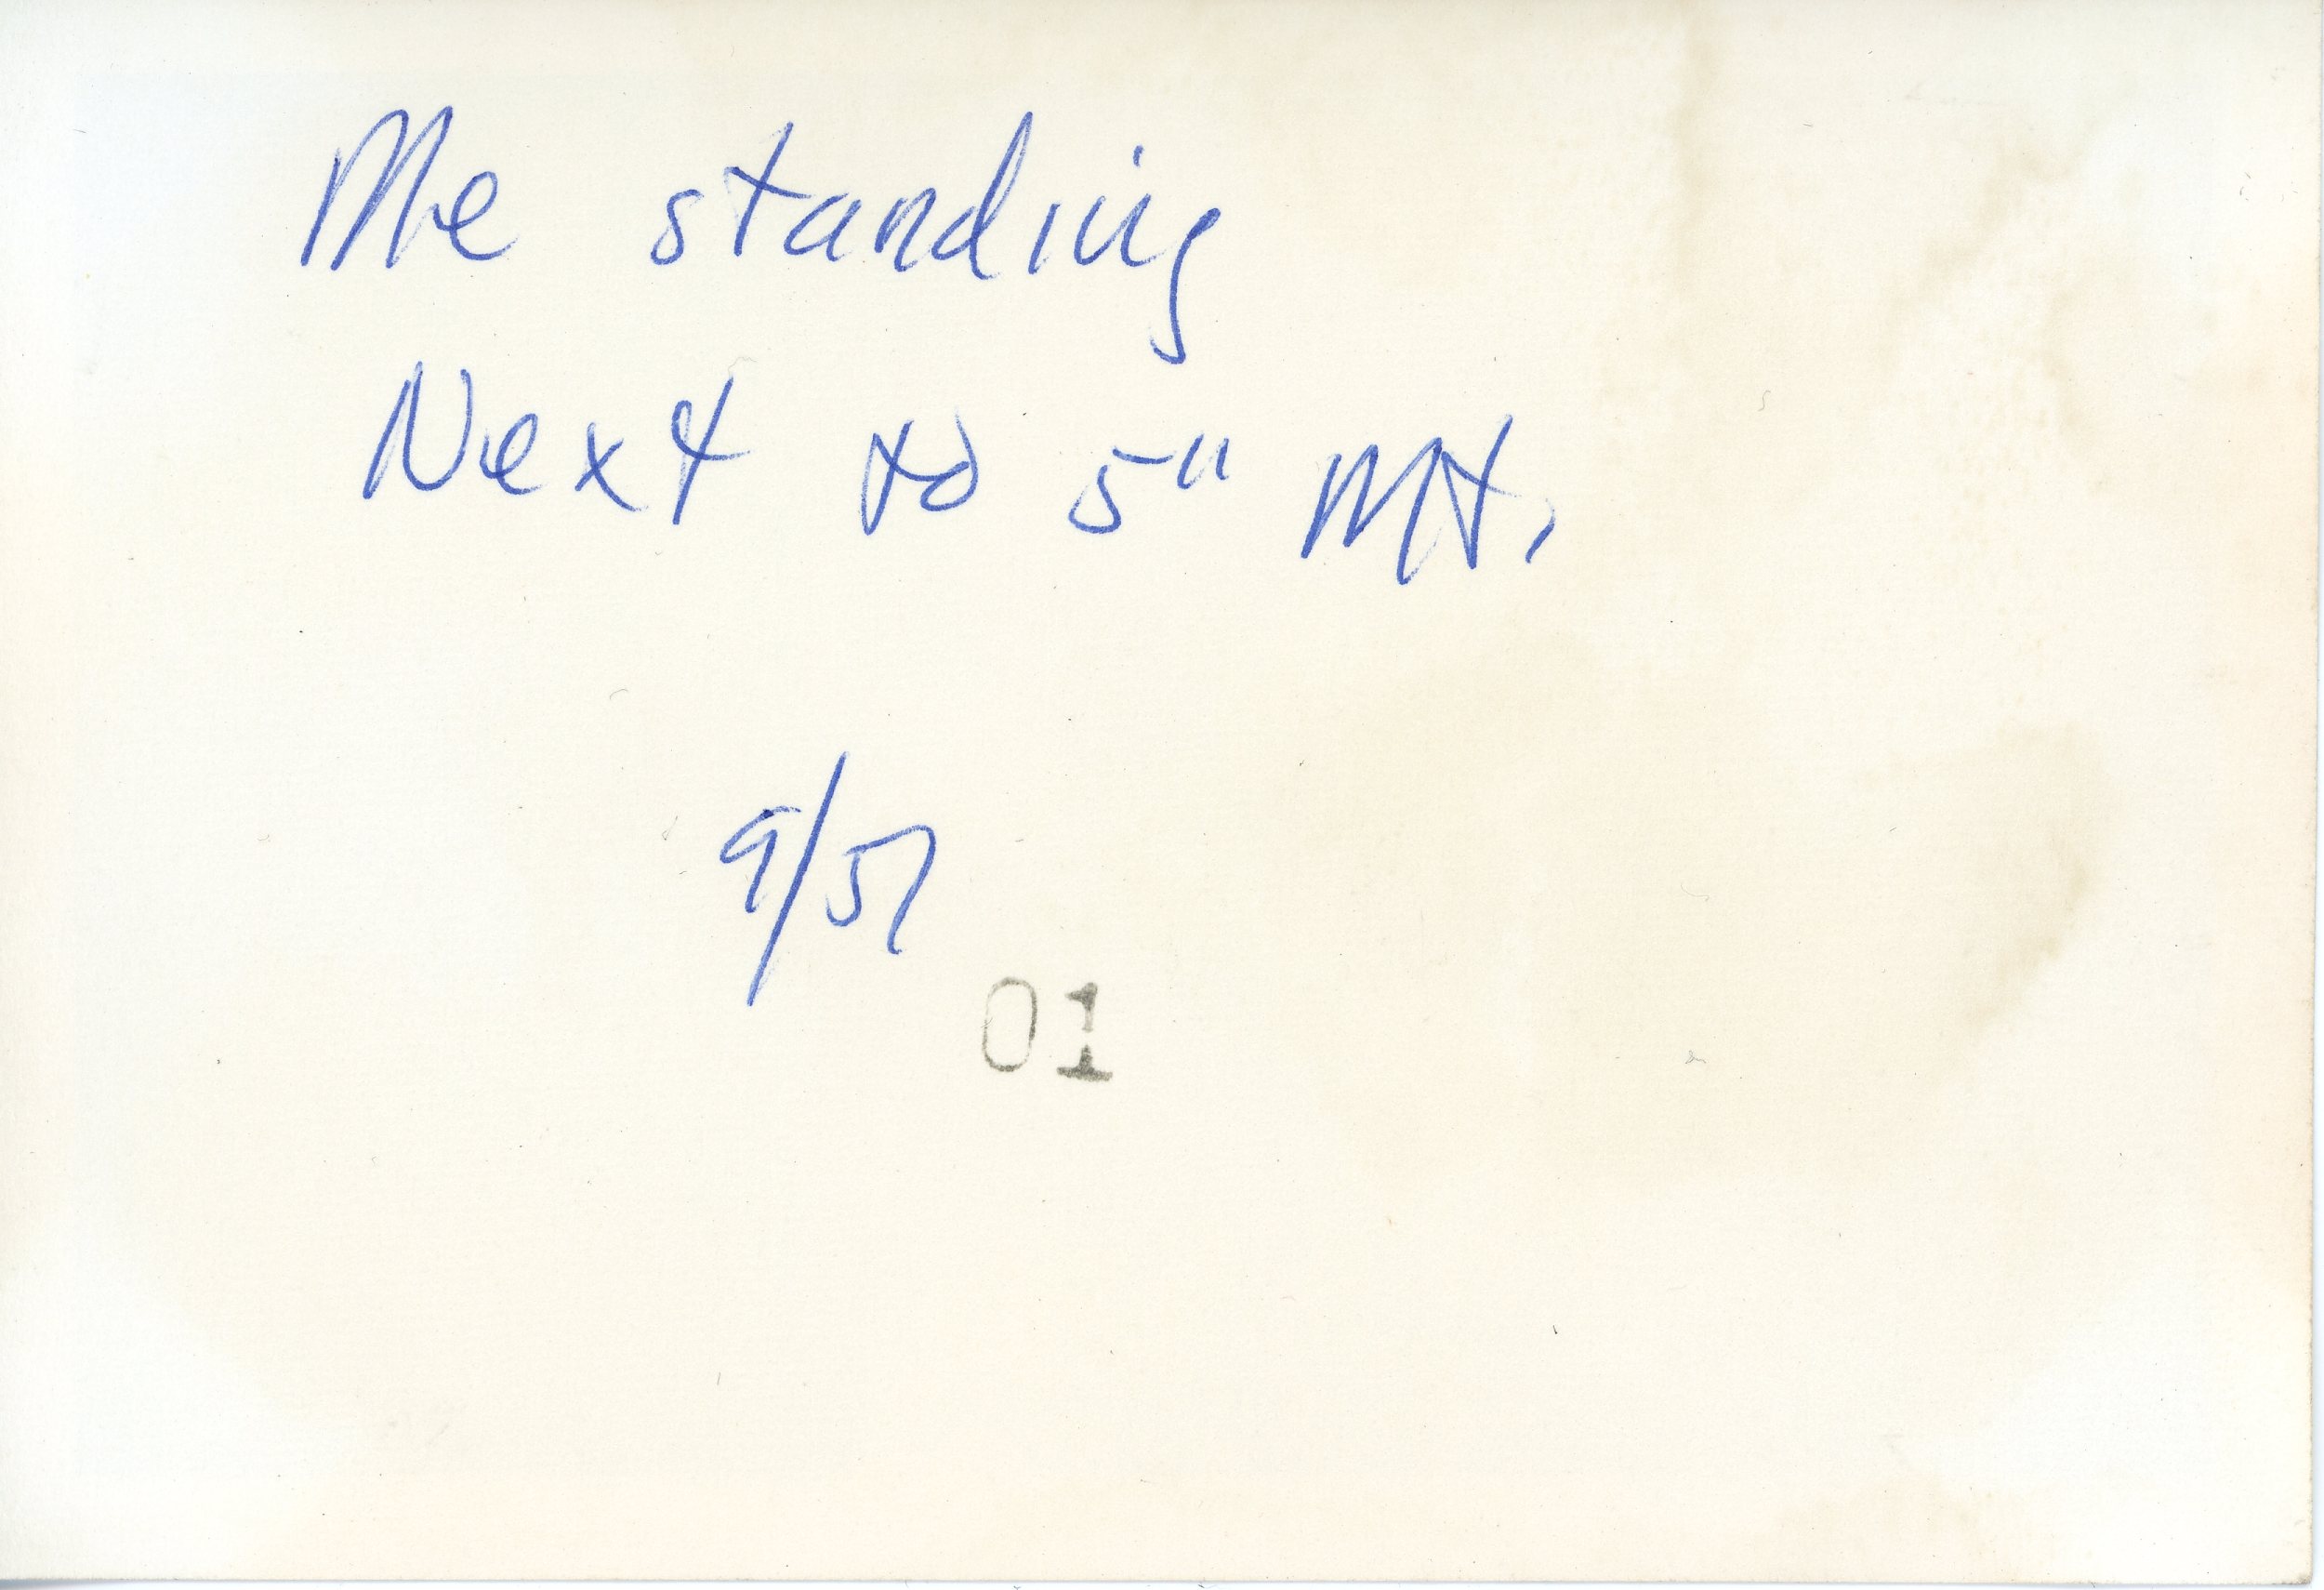 Me standing
Next to 5" Mt.
9/57
01